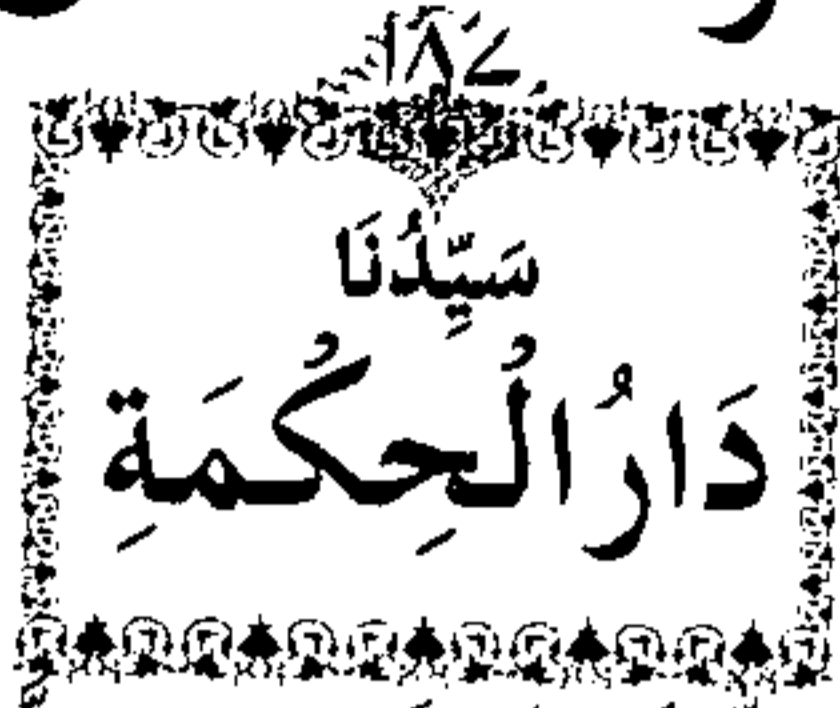 ۱۸۷
سَيِّدُنَا
دَارُ الْحِكْمَةِ